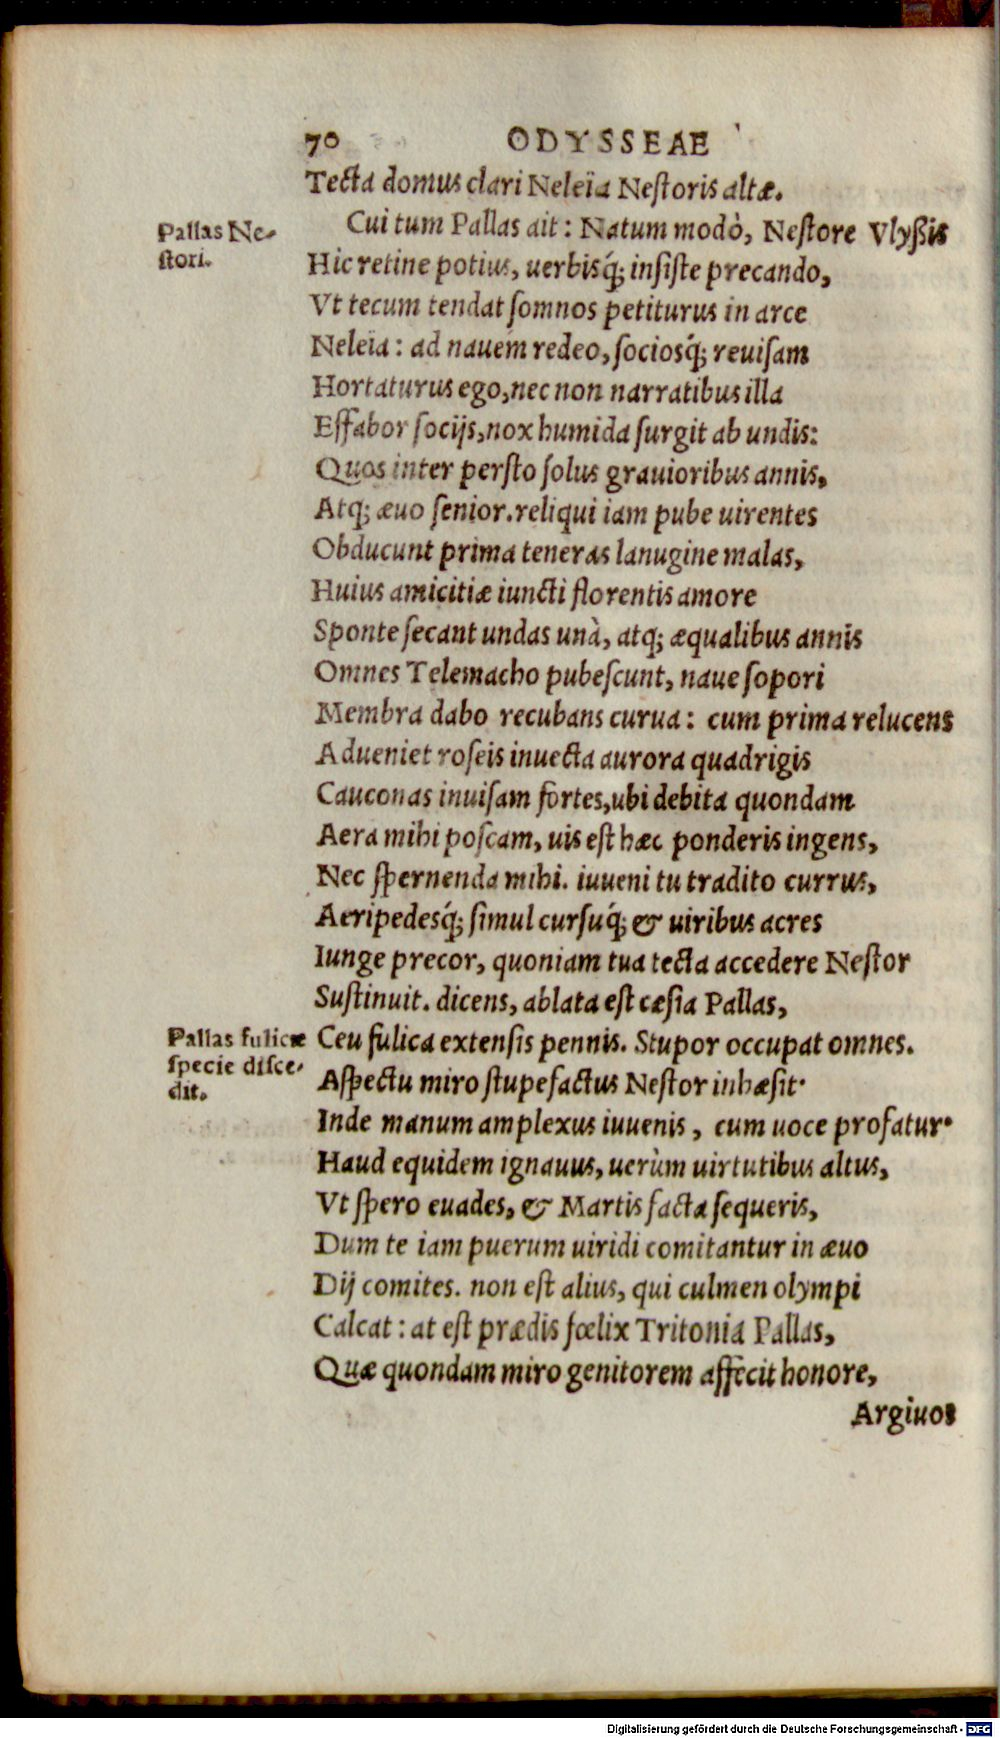 70 ODYSSEAE
Tecta domus clari Neleïa Nestoris altæ.
Pallas Ne-
stori.
Cui tum Pallas ait: Natum modò, Nestore Vlyßis
Hic retine potius, uerbisq́; insiste precando,
Vt tecum tendat somnos petiturus in arce
Neleia: ad nauem redeo, sociosq́; reuisam
Hortaturus ego, nec non narratibus illa
Effabor socijs, nox humida surgit ab undis:
Quos inter persto solus grauioribus annis,
Atq; æuo senior. reliqui iam pube uirentes
Obducunt prima teneras lanugine malas,
Huius amicitiæ iuncti florentis amore
Sponte secant undas unà, atq; æqualibus annis
Omnes Telemacho pubescunt, naue sopori
Membra dabo recubans curua: cum prima relucens
Adueniet roseis inuecta aurora quadrigis
Cauconas inuisam fortes, ubi debita quondam
Aera mihi poscam, uis est hæc ponderis ingens,
Nec spernenda mihi. iuueni tu tradito currus,
Aeripedesq́; simul cursuq́; & uiribus acres
Iunge precor, quoniam tua tecta accedere Nestor
Sustinuit. dicens, ablata est cæsia Pallas,
Pallas fulicæ
specie disce-
dit.
Ceu fulica extensis pennis. Stupor occupat omnes.
Aspectu miro stupefactus Nestor inhæsit.
Inde manum amplexus iuuenis, cum uoce profatur.
Haud equidem ignauus, uerùm uirtutibus altus,
Vt spero euades, & Martis facta sequeris,
Dum te iam puerum uiridi comitantur in æuo
Dij comites. non est alius, qui culmen olympi
Calcat: at est prædis fœlix Tritonia Pallas,
Quæ quondam miro genitorem affecit honore,
Argiuos
Digitalisierung gefördert durch die Deutsche Forschungsgemeinschaft - DFG